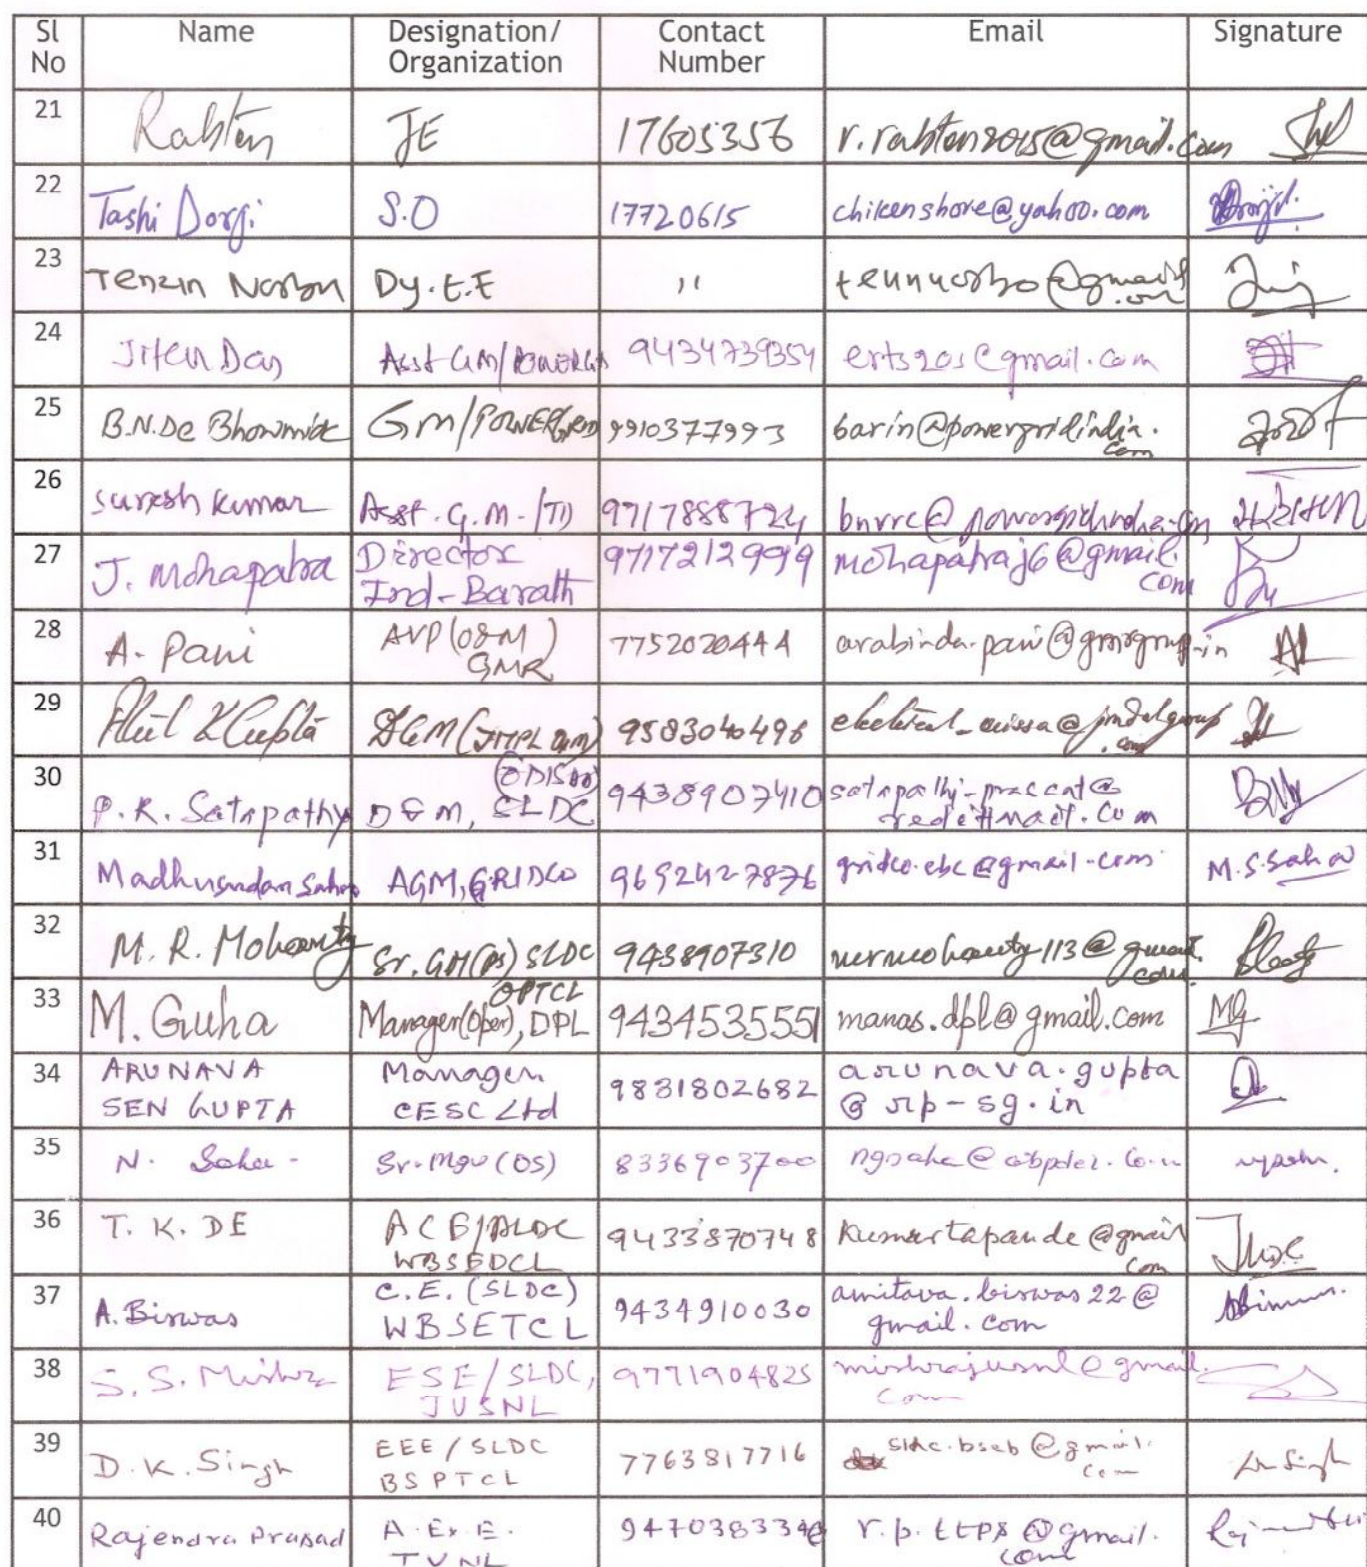 Sl No Name Designation/ Organization Contact Number Email Signature
21 Rabten JE 17605356 r.rabten2015@gmail.com
22 Tashi Dorji S.O 17720615 chikenshore@yahoo.com
23 Tenzin Norbu Dy.E.E ,, tennuorbo@gmail.com
24 Jiten Das Asst GM/POWERGRID 9434739354 erts2os@gmail.com
25 B.N.De Bhowmick GM/POWERGRID 9910377993 barin@powergridindia.com
26 Suresh Kumar Asst. G.M. 9717888724
27 J. Mohapatra Director Ind-Barath 9717212999 mohapatraj6@gmail.com
28 A. Pani AVP (O&M) GMR 7752020444 arabinda.pani@gmrgroup.in
29 K Gupta DGM (JITPL O&M) 9583040496 electrical_orissa@jindalgroup.com
30 P.K. Satapathy DGM, SLDC (ODISHA) 9438907410
31 Madhusudan Sahoo AGM, GRIDCO 9692427876 gridco.ebc@gmail.com M.S.Sahoo
32 M.R. Mohanty Sr. GM(PS) SLDC OPTCL 9438907310 mrmohanty113@gmail.com
33 M. Guha Manager(Open), DPL 9434535551 manas.dpl@gmail.com MG
34 ARUNAVA SEN GUPTA Manager CESC Ltd 9831802682 arunava.gupta@rp-sg.in
35 N. Saha Sr. Mgr (OS) 8336903700
36 T. K. DE ACE/ALDC WBSEDCL 9433870748 kumartapande@gmail.com
37 A. Biswas C.E. (SLDC) WBSETCL 9434910030 amitava.biswas22@gmail.com
38 S.S. Mishra ESE/SLDC, JUSNL 9771904825 mishrajusnl@gmail.com
39 D.K. Singh EEE/SLDC BSPTCL 7763817716 sldc.bseb@gmail.com
40 Rajendra Prasad A.Ex.E. TVNL r.p.ttps@gmail.com